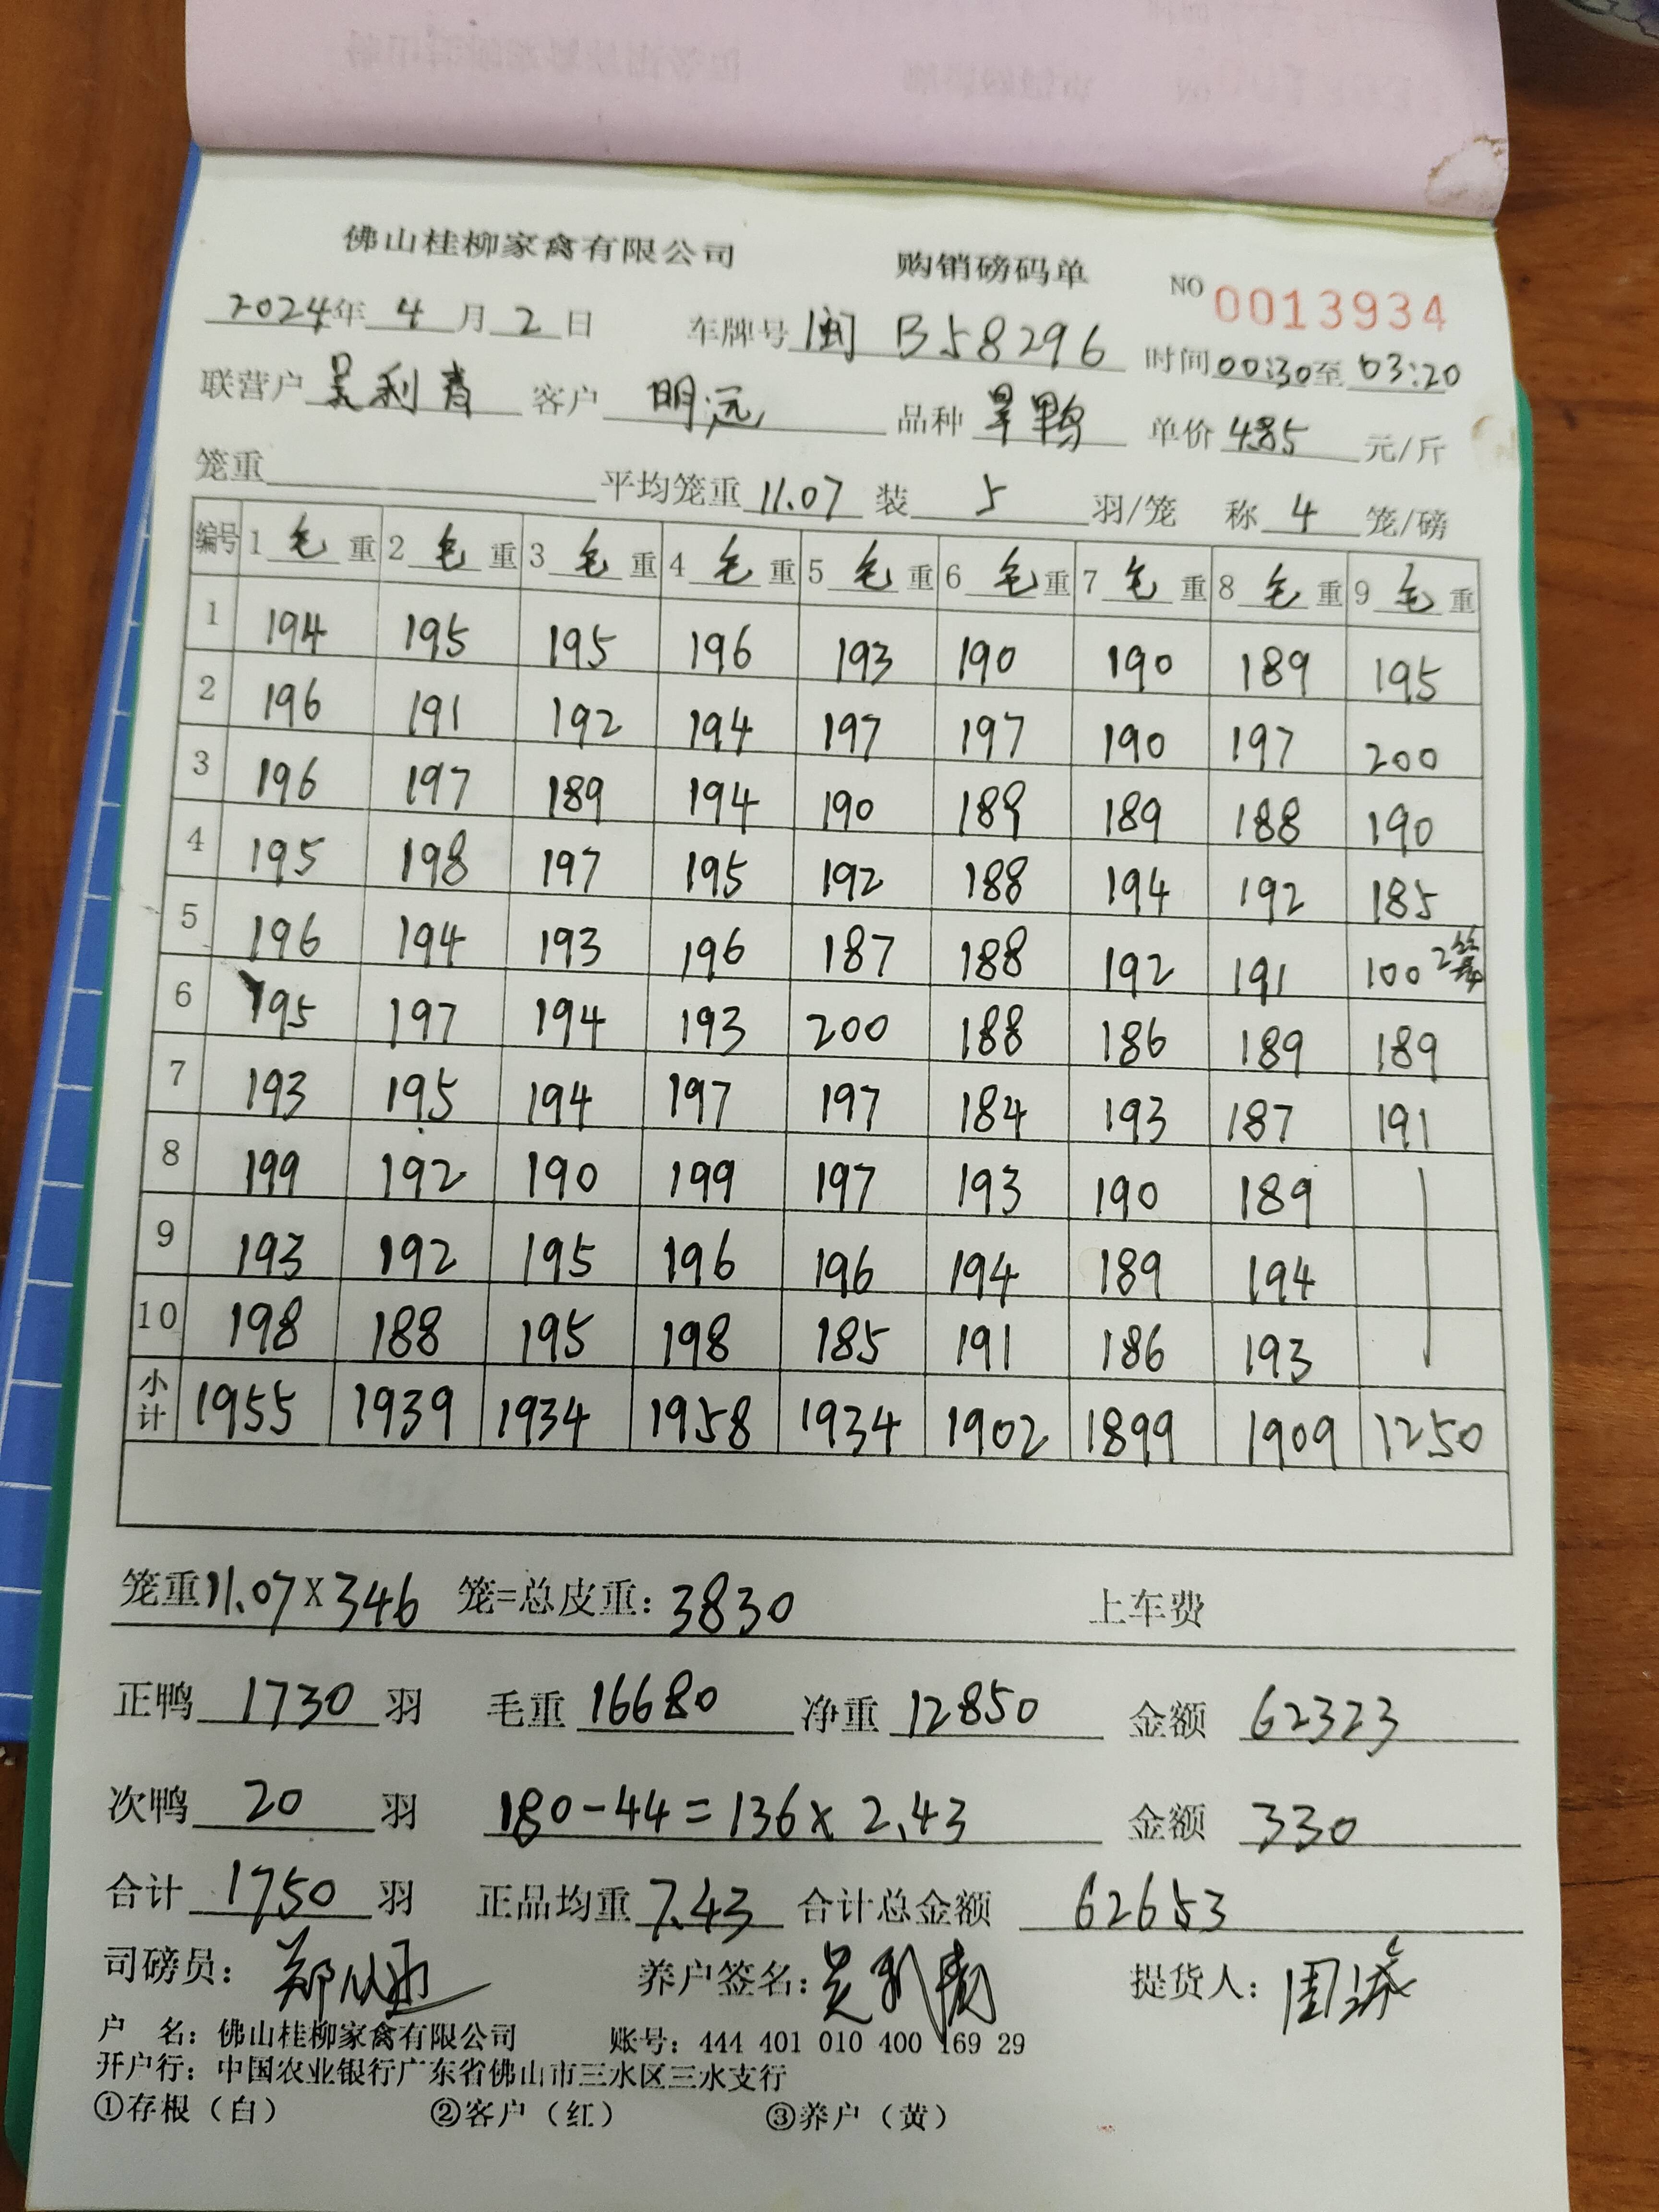 佛山桂柳家禽有限公司 购销磅码单 NO 0013934
2024年 4 月 2 日 车牌号 闽 B58296 时间 00:30 至 03:20
联营户 吴利青 客户 明远 品种 旱鸭 单价 4.85 元/斤
笼重 平均笼重 11.07 装 5 羽/笼 称 4 笼/磅
编号 1 毛 重 2 毛 重 3 毛 重 4 毛 重 5 毛 重 6 毛 重 7 毛 重 8 毛 重 9 毛 重
1 194 195 195 196 193 190 190 189 195
2 196 191 192 194 197 197 190 197 200
3 196 197 189 194 190 189 189 188 190
4 195 198 197 195 192 188 194 192 185
5 196 194 193 196 187 188 192 191 100 2
6 195 197 194 193 200 188 186 189 189
7 193 195 194 197 197 184 193 187 191
8 199 192 190 199 197 193 190 189
9 193 192 195 196 196 194 189 194
10 198 188 195 198 185 191 186 193
小计 1955 1939 1934 1958 1934 1902 1899 1909 1250
笼重 11.07 X 346 笼=总皮重: 3830 上车费
正鸭 1730 羽 毛重 16680 净重 12850 金额 62323
次鸭 20 羽 180-44=136x 2.43 金额 330
合计 1750 羽 正品均重 7.43 合计总金额 62653
司磅员: 养户签名: 吴利青 提货人:
户 名: 佛山桂柳家禽有限公司 账号: 444 401 010 400 169 29
开户行: 中国农业银行广东省佛山市三水区三水支行
①存根（白） ②客户（红） ③养户（黄）